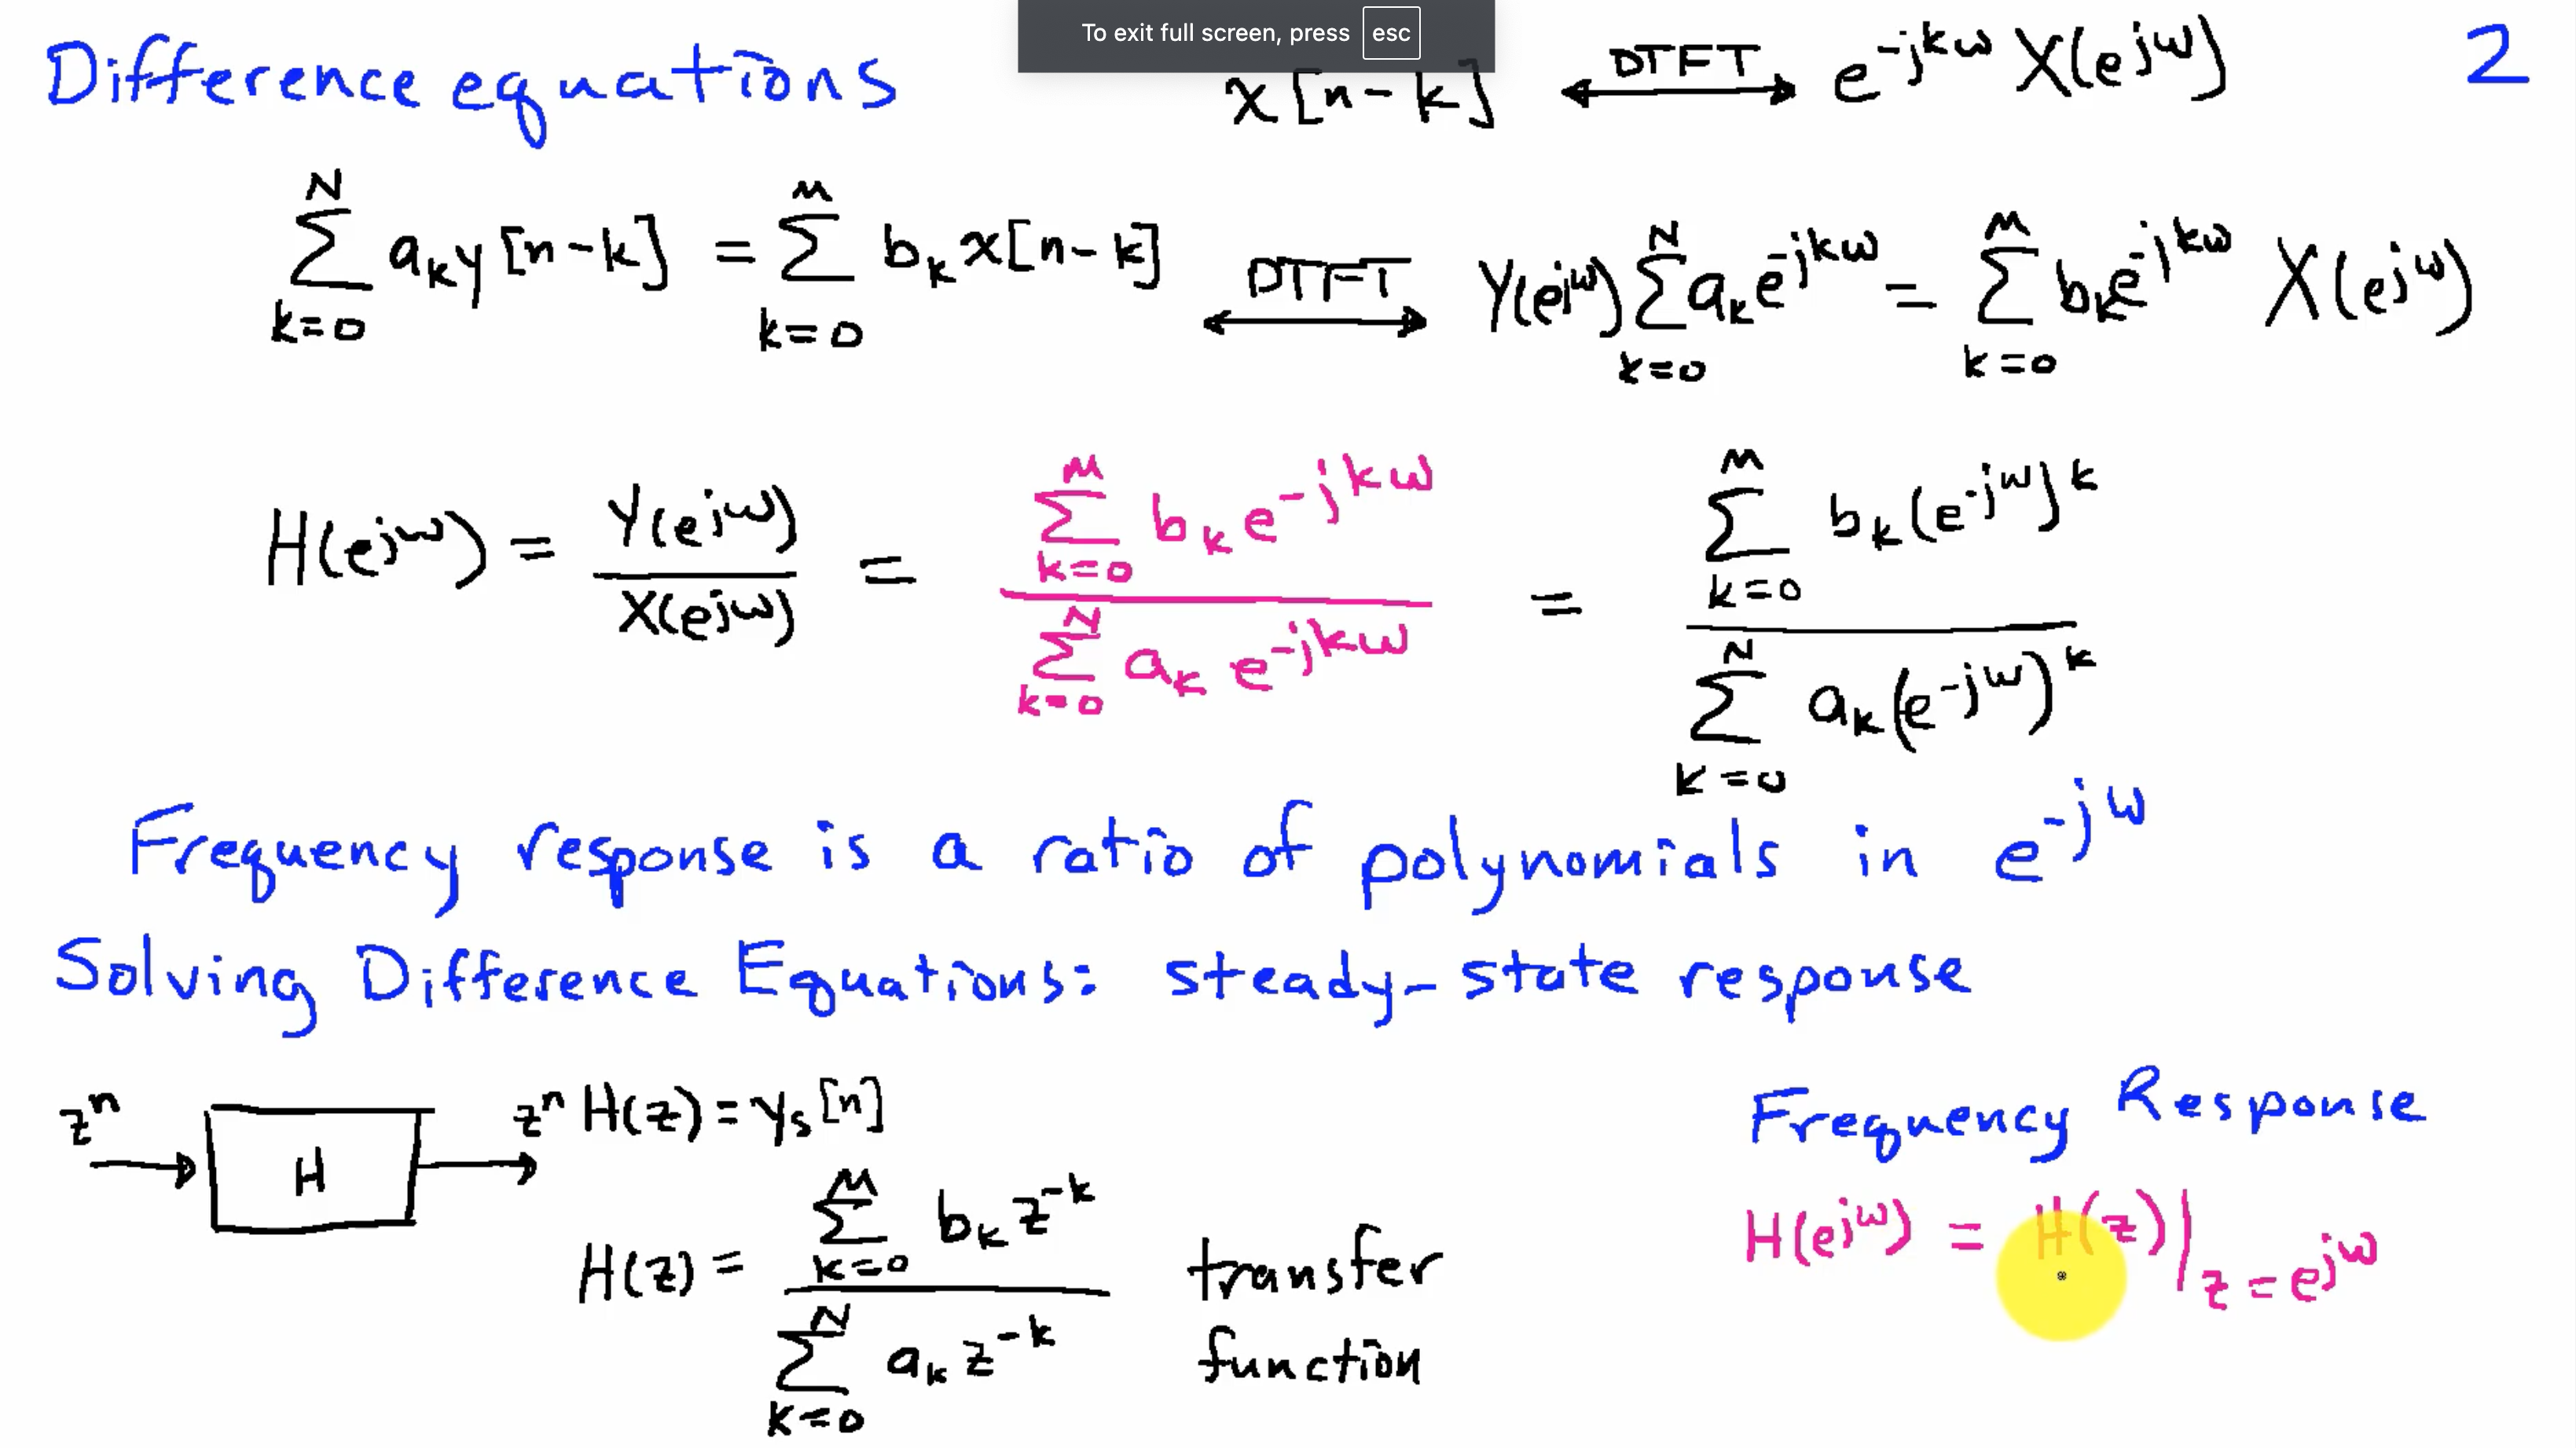 To exit full screen, press esc
Difference equations
x[n-k] ⟷ DTFT e^{-jkω} X(e^{jω})
2
∑_{k=0}^{N} a_k y[n-k] = ∑_{k=0}^{M} b_k x[n-k] ⟷ DTFT Y(e^{jω}) ∑_{k=0}^{N} a_k e^{-jkω} = ∑_{k=0}^{M} b_k e^{-jkω} X(e^{jω})
H(e^{jω}) = Y(e^{jω}) / X(e^{jω}) = ∑_{k=0}^{M} b_k e^{-jkω} / ∑_{k=0}^{N} a_k e^{-jkω} = ∑_{k=0}^{M} b_k (e^{-jω})^k / ∑_{k=0}^{N} a_k (e^{-jω})^k
Frequency response is a ratio of polynomials in e^{-jω}
Solving Difference Equations: steady-state response
z^n H z^n H(z) = y_s[n]
H(z) = ∑_{k=0}^{M} b_k z^{-k} / ∑_{k=0}^{N} a_k z^{-k}
transfer
function
Frequency Response
H(e^{jω}) = H(z)|_{z = e^{jω}}